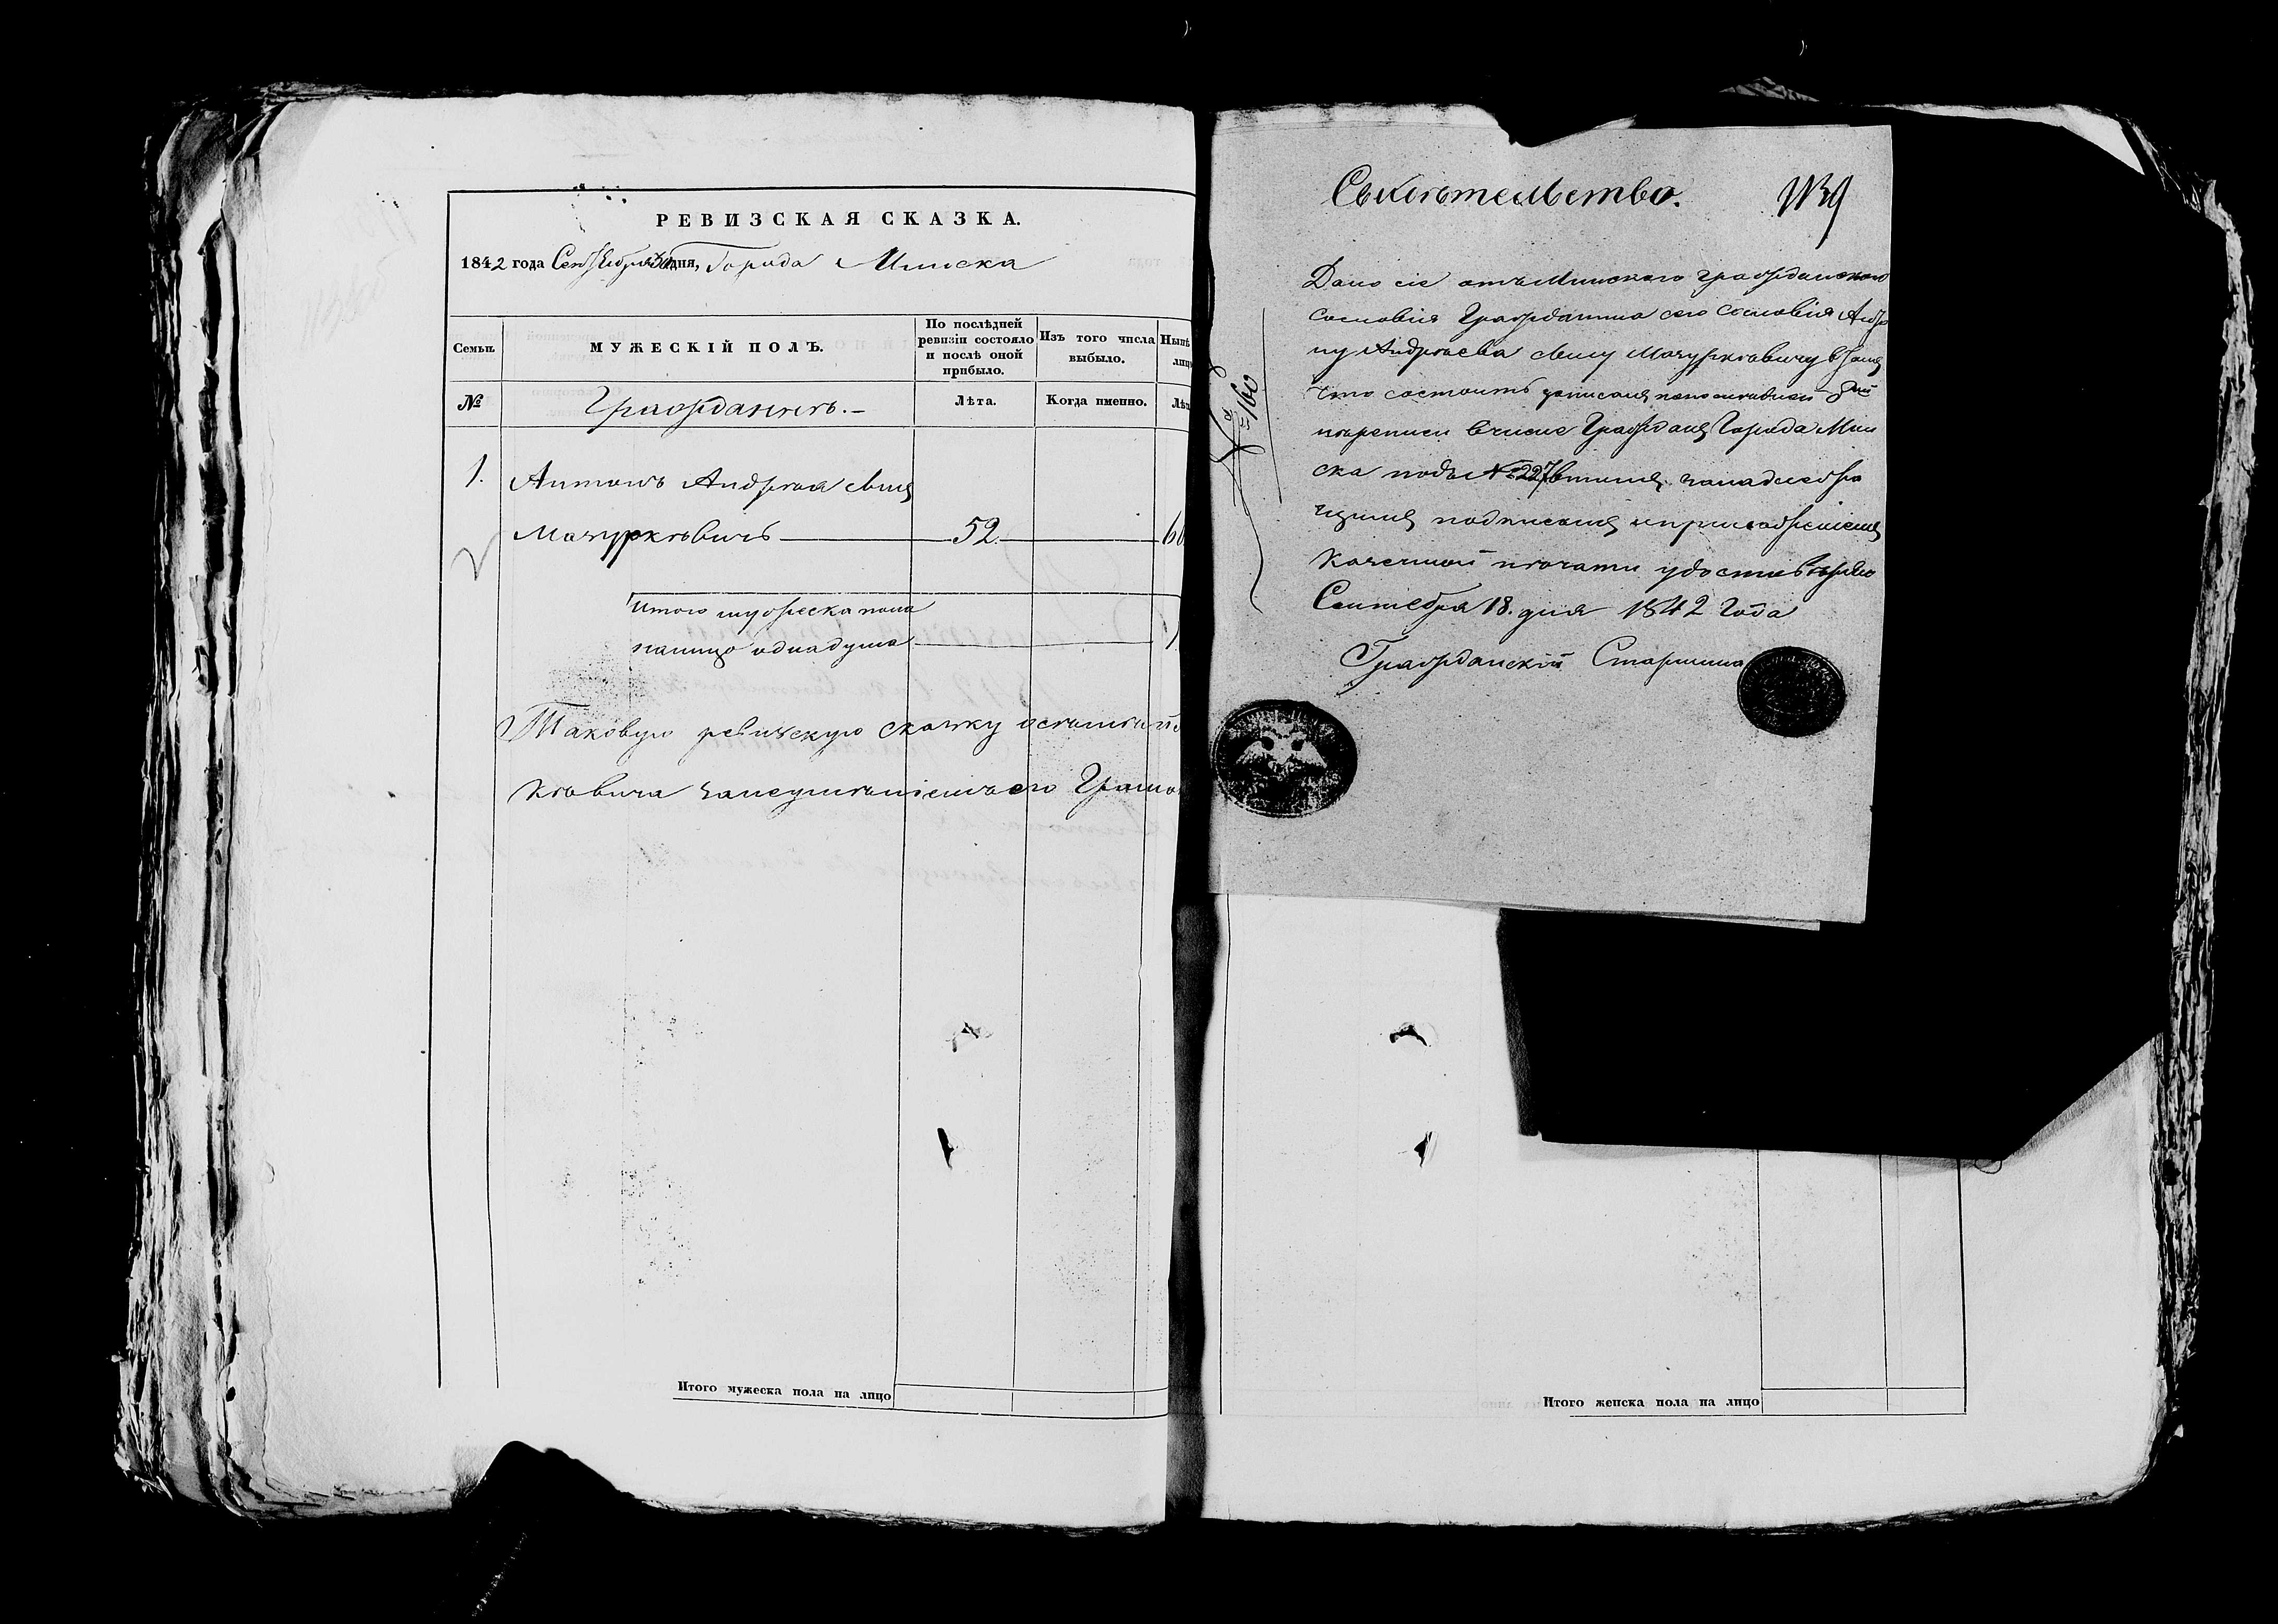 РЕВИЗСКАЯ СКАЗКА.
1842 года Сентября 30 дня, Города Минска
Семьи.
МУЖЕСКІЙ ПОЛЪ.
По послѣдней ревизіи состояло и послѣ оной прибыло.
Изъ того числа выбыло.
Нынѣ
лиц
№
Гражданинъ.—
Лѣта.
Когда именно.
Лѣт
1.
Антонъ Андреева сынъ
Мачуркевичъ
52.
60
Итого мужеска пола
налицо одна душа
1
Таковую ревизскую сказку
кевича Грамо
Итого мужеска пола на лицо
Свидетельство.
Дано сіе отъ Минскаго гражданскаго
сословія Гражданину сего сословія Анто
ну Андреева сыну Мачуркевичу в томъ
что состоитъ записанъ по
переписи в числе Гражданъ Города Мин
ска подъ № 227 в чемъ за надлежа
щимъ подписомъ и приложеніемъ
казенной печати удостоверяю
Сентября 18. дня 1842 Года
Гражданскій Старшина
Итого женска пола на лицо